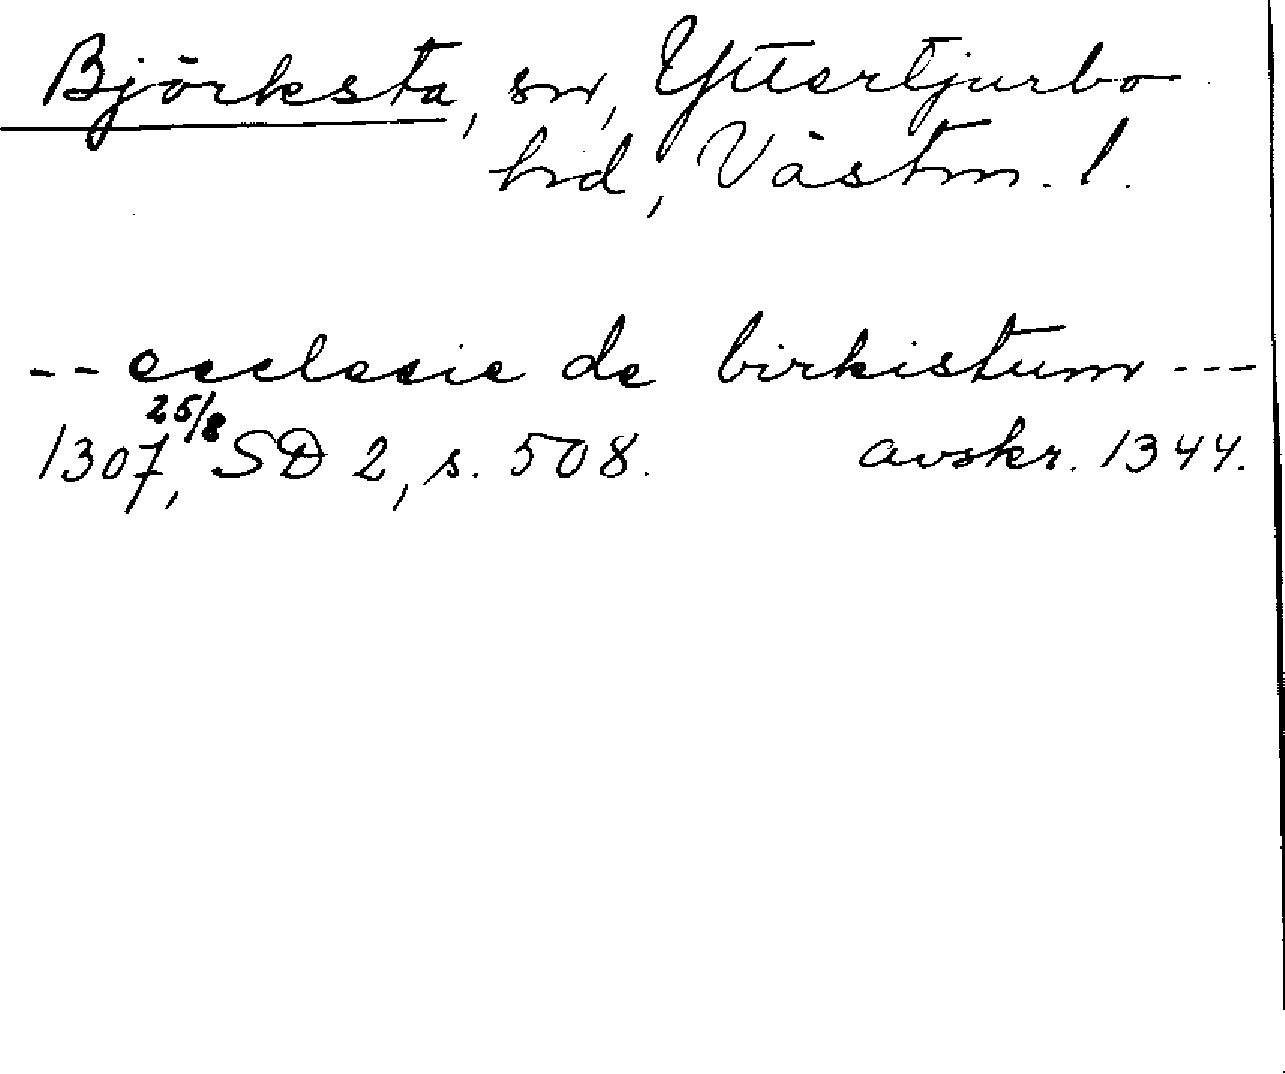 Björksta, sn, Yttertjurbo
hrd, Västm. l.
-- ecclesie de birkistum ---
1307 25/8, SD 2, s. 508. avskr. 1344.